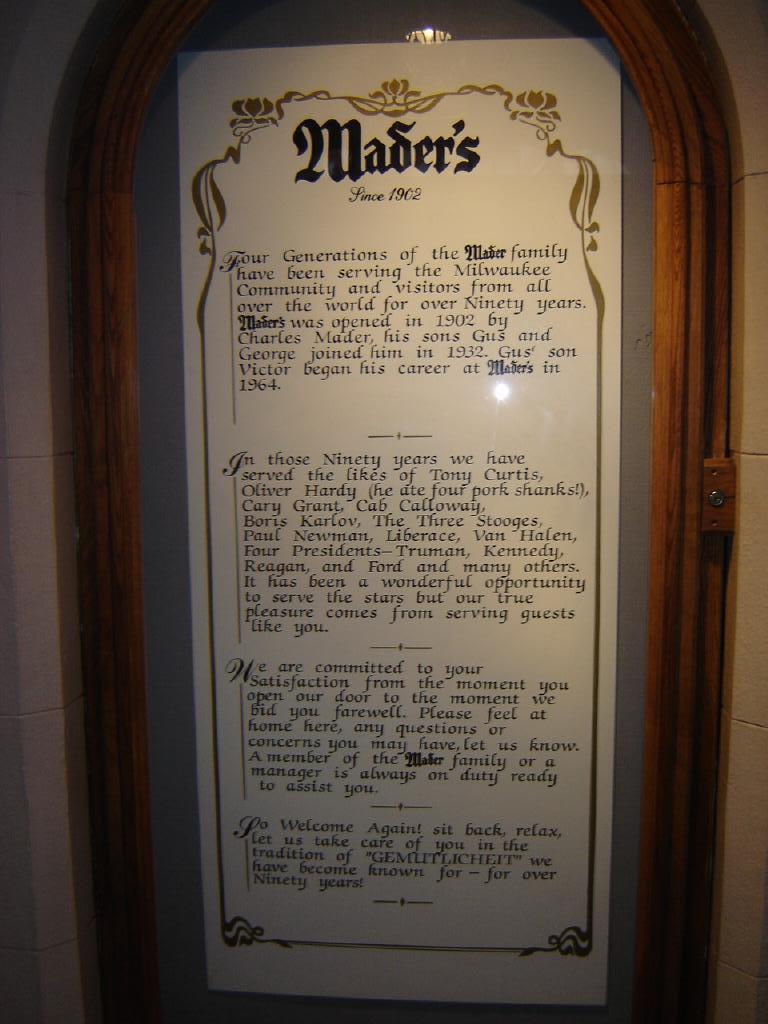 Mader's
Since 1902
Four Generations of the Mader family
have been serving the Milwaukee
Community and visitors from all
over the world for over Ninety years.
Mader's was opened in 1902 by
Charles Mader, his sons Gus and
George joined him in 1932. Gus' son
Victor began his career at Mader's in
1964.
In those Ninety years we have
served the likes of Tony Curtis,
Oliver Hardy (he ate four pork shanks!),
Cary Grant, Cab Calloway,
Boris Karlov, The Three Stooges,
Paul Newman, Liberace, Van Halen,
Four Presidents—Truman, Kennedy,
Reagan, and Ford and many others.
It has been a wonderful opportunity
to serve the stars but our true
pleasure comes from serving guests
like you.
We are committed to your
Satisfaction from the moment you
open our door to the moment we
bid you farewell. Please feel at
home here, any questions or
concerns you may have, let us know.
A member of the Mader family or a
manager is always on duty ready
to assist you.
So Welcome Again! sit back, relax,
let us take care of you in the
tradition of "GEMUTLICHEIT" we
have become known for — for over
Ninety years!